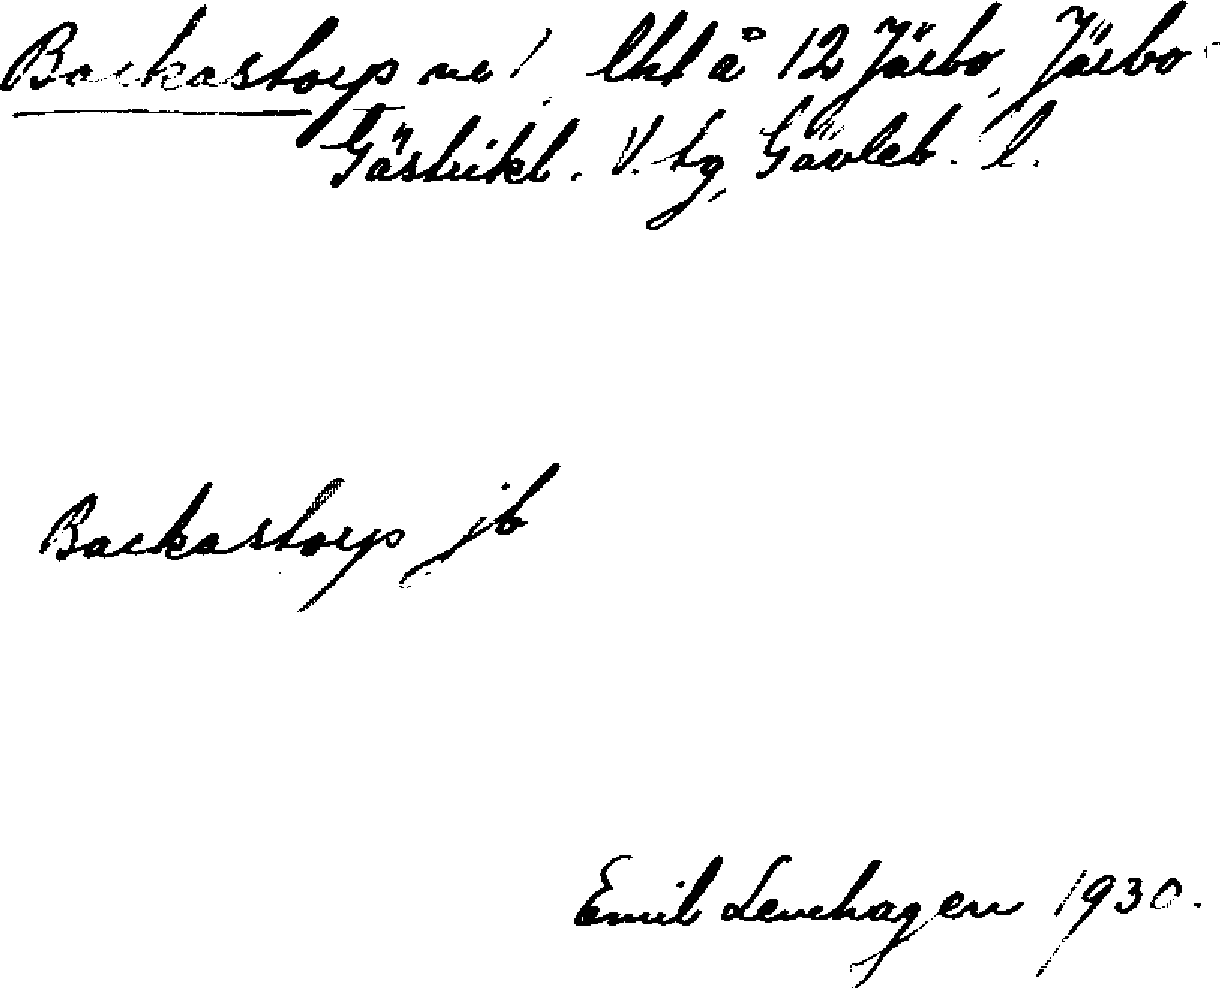 Backastorp nr 1 lht å 12 Järbo, Järbo
Gästrikl. V. tg, Gävleb. l.
Backastorp jb
Emil Levehagen 1930.